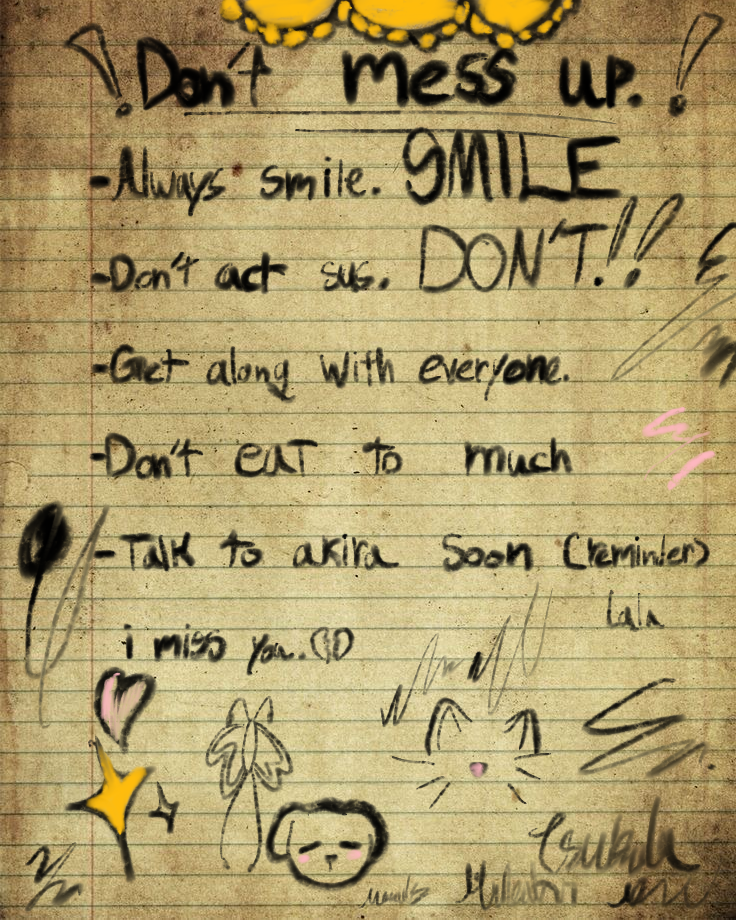 ! Don't mess up. !
-Always smile. SMILE
-Don't act sus. DON'T!!
-Get along with everyone.
-Don't eat to much
-Talk to akira soon (reminder)
lala
i miss you.